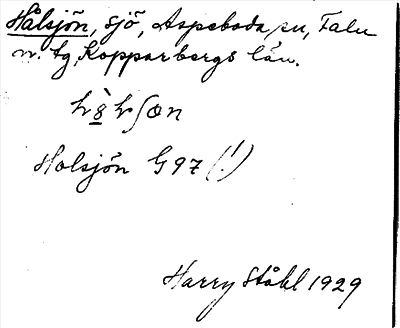 Hålsjön, sjö, Aspeboda sn, Falu
n. tg, Kopparbergs län.
Holsjön G97 (!)
Harry Ståhl 1929